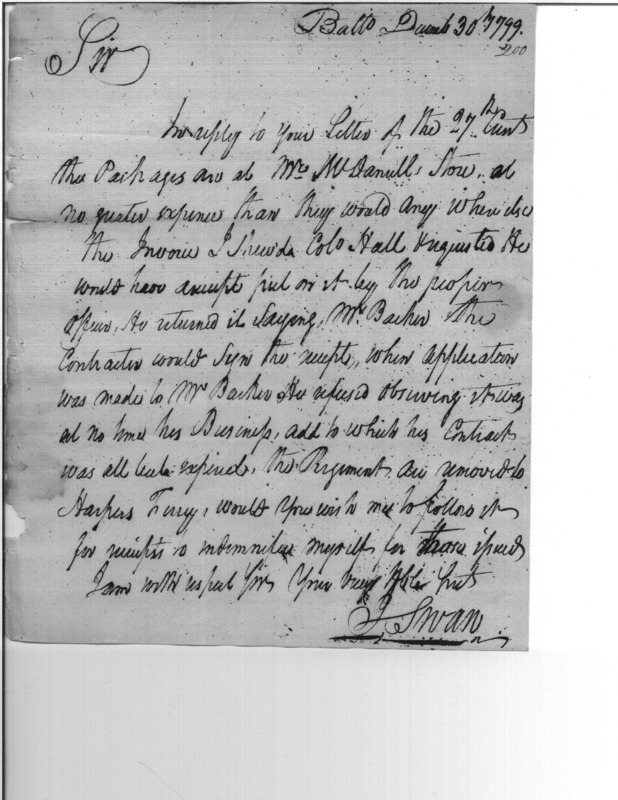 Balto Decemb 30th 1799.
200
Sir
In reply to Your Letter of the 27th Curnt
the Packages are at Mrs McDaniells Store, at
no greater expence than they would Any Where else
the Invoice I Shew'd Colo Hall & requested He
would have a receipt put on it by the proper
officer, He returned it Saying, Mr. Barker the
Contractor would Sign the receipts, when Application
was made to Mr Barker He refused observing it was
at no time his Business, add to which his Contract
was all but expired, the Regiment are removed to
Harpers Ferry, would You wish me to follow it
for receipts to indemnifie myself for those issued
I am with respect Sir Your very Hble Sert
J Swan